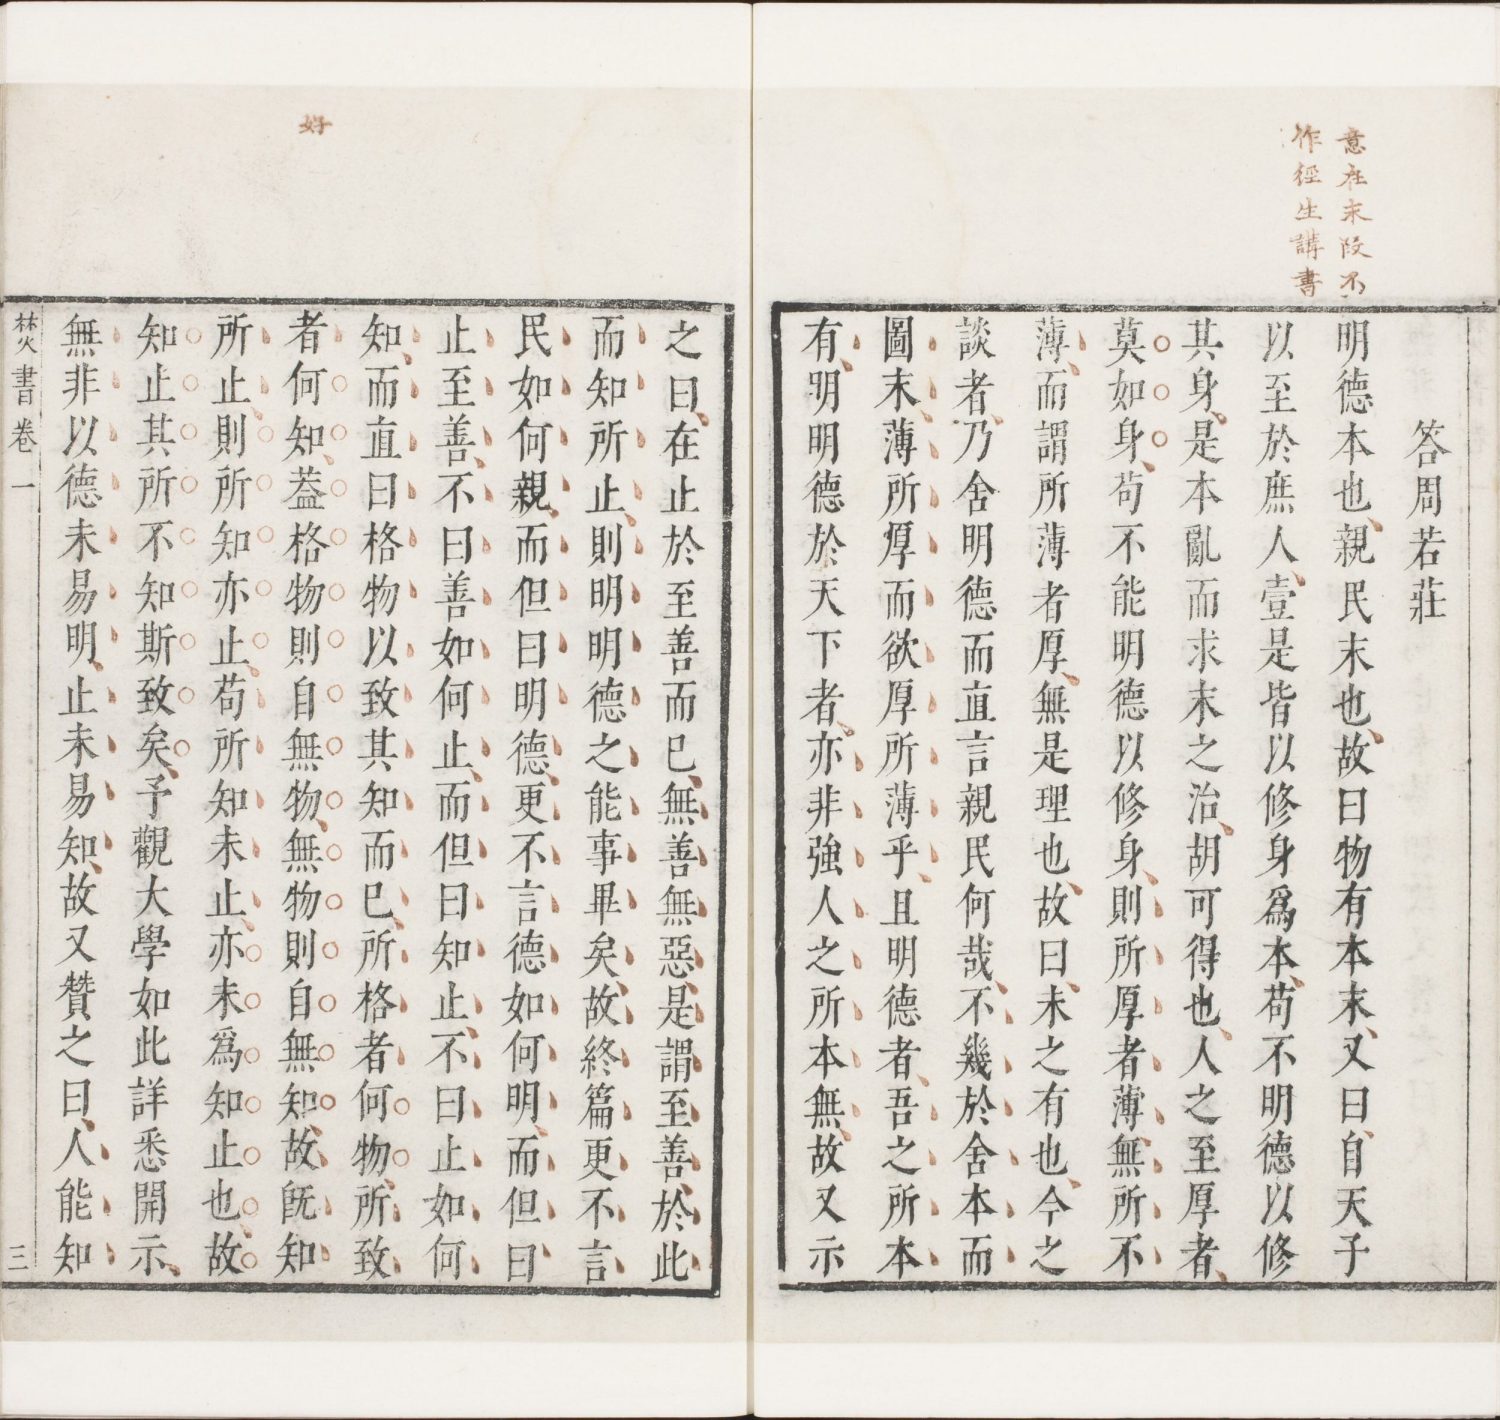 意在末段不
作徑生講書
答周若莊
明德本也、親民末也、故曰物有本末、又曰、自天子
以至於庶人、壹是皆以修身爲本、苟不明德以修
其身、是本亂而求末之治、胡可得也、人之至厚者、
莫如身、苟不能明德以修身、則所厚者薄、無所不
薄、而謂所薄者厚、無是理也、故曰、未之有也、今之
談者、乃舍明德而直言親民何哉、不幾於舍本而
圖末、薄所厚而欲厚所薄乎、且明德者、吾之所本
有、明明德於天下者、亦非強人之所本無、故又示
之曰、在止於至善而已、無善無惡、是謂至善、於此
而知所止、則明明德之能事畢矣、故終篇更不言
民如何親、而但曰明德、更不言德如何明、而但曰
止至善、不曰善如何止、而但曰知止、不曰止如何
知、而直曰格物以致其知而已、所格者何物、所致
者何知、葢格物則自無物、無物則自無知、故旣知
所止、則所知亦止、苟所知未止、亦未爲知止也、故
知止其所不知、斯致矣、予觀大學如此詳悉開示、
無非以德未易明、止未易知、故又贊之曰、人能知
好
焚書 卷一
三